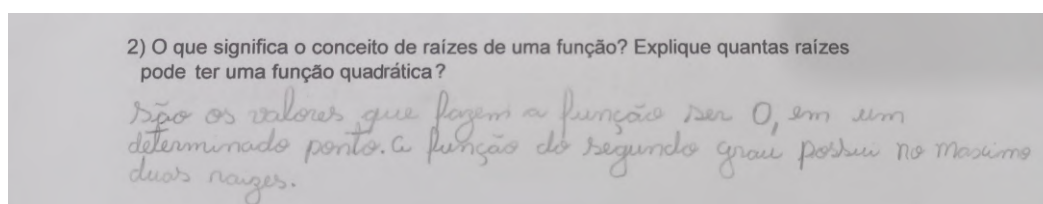 2) O que significa o conceito de raízes de uma função? Explique quantas raízes
pode ter uma função quadrática?
São os valores que fazem a função ser 0, em um
determinado ponto. a função do segundo grau possui no maximo
duas raizes.